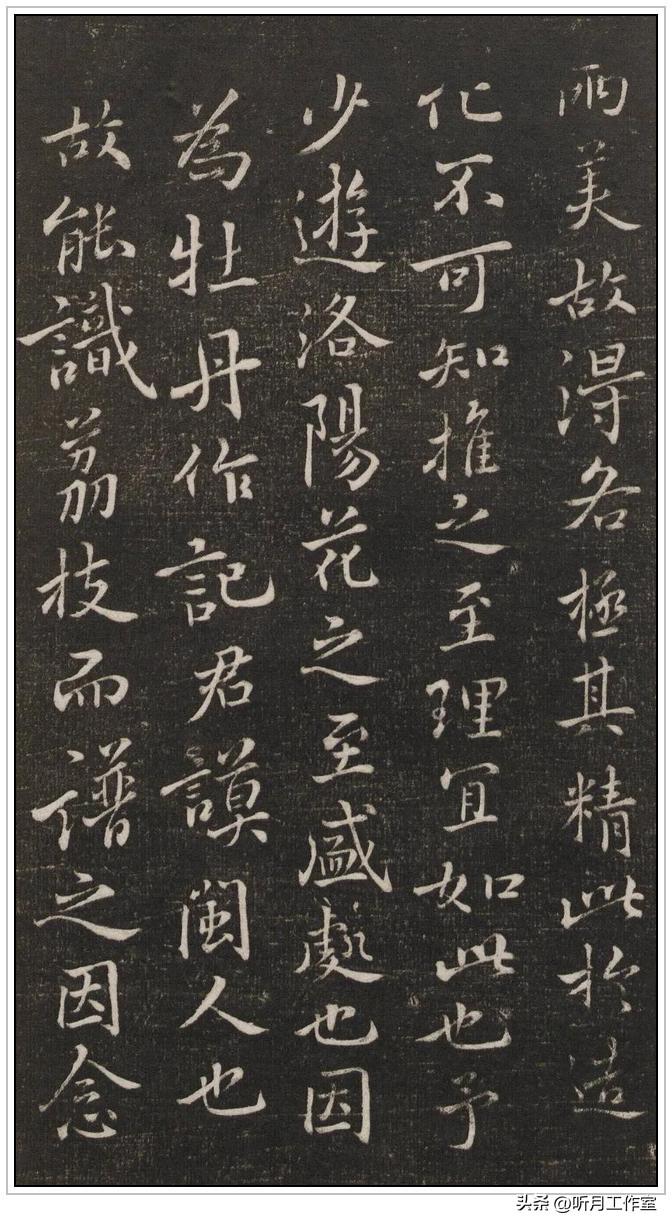 兩美故得各極其精此於造
化不可知推之至理宜如此也予
少遊洛陽花之至盛處也因
為牡丹作記君謨閩人也
故能識荔枝而譜之因念
头条 @听月工作室